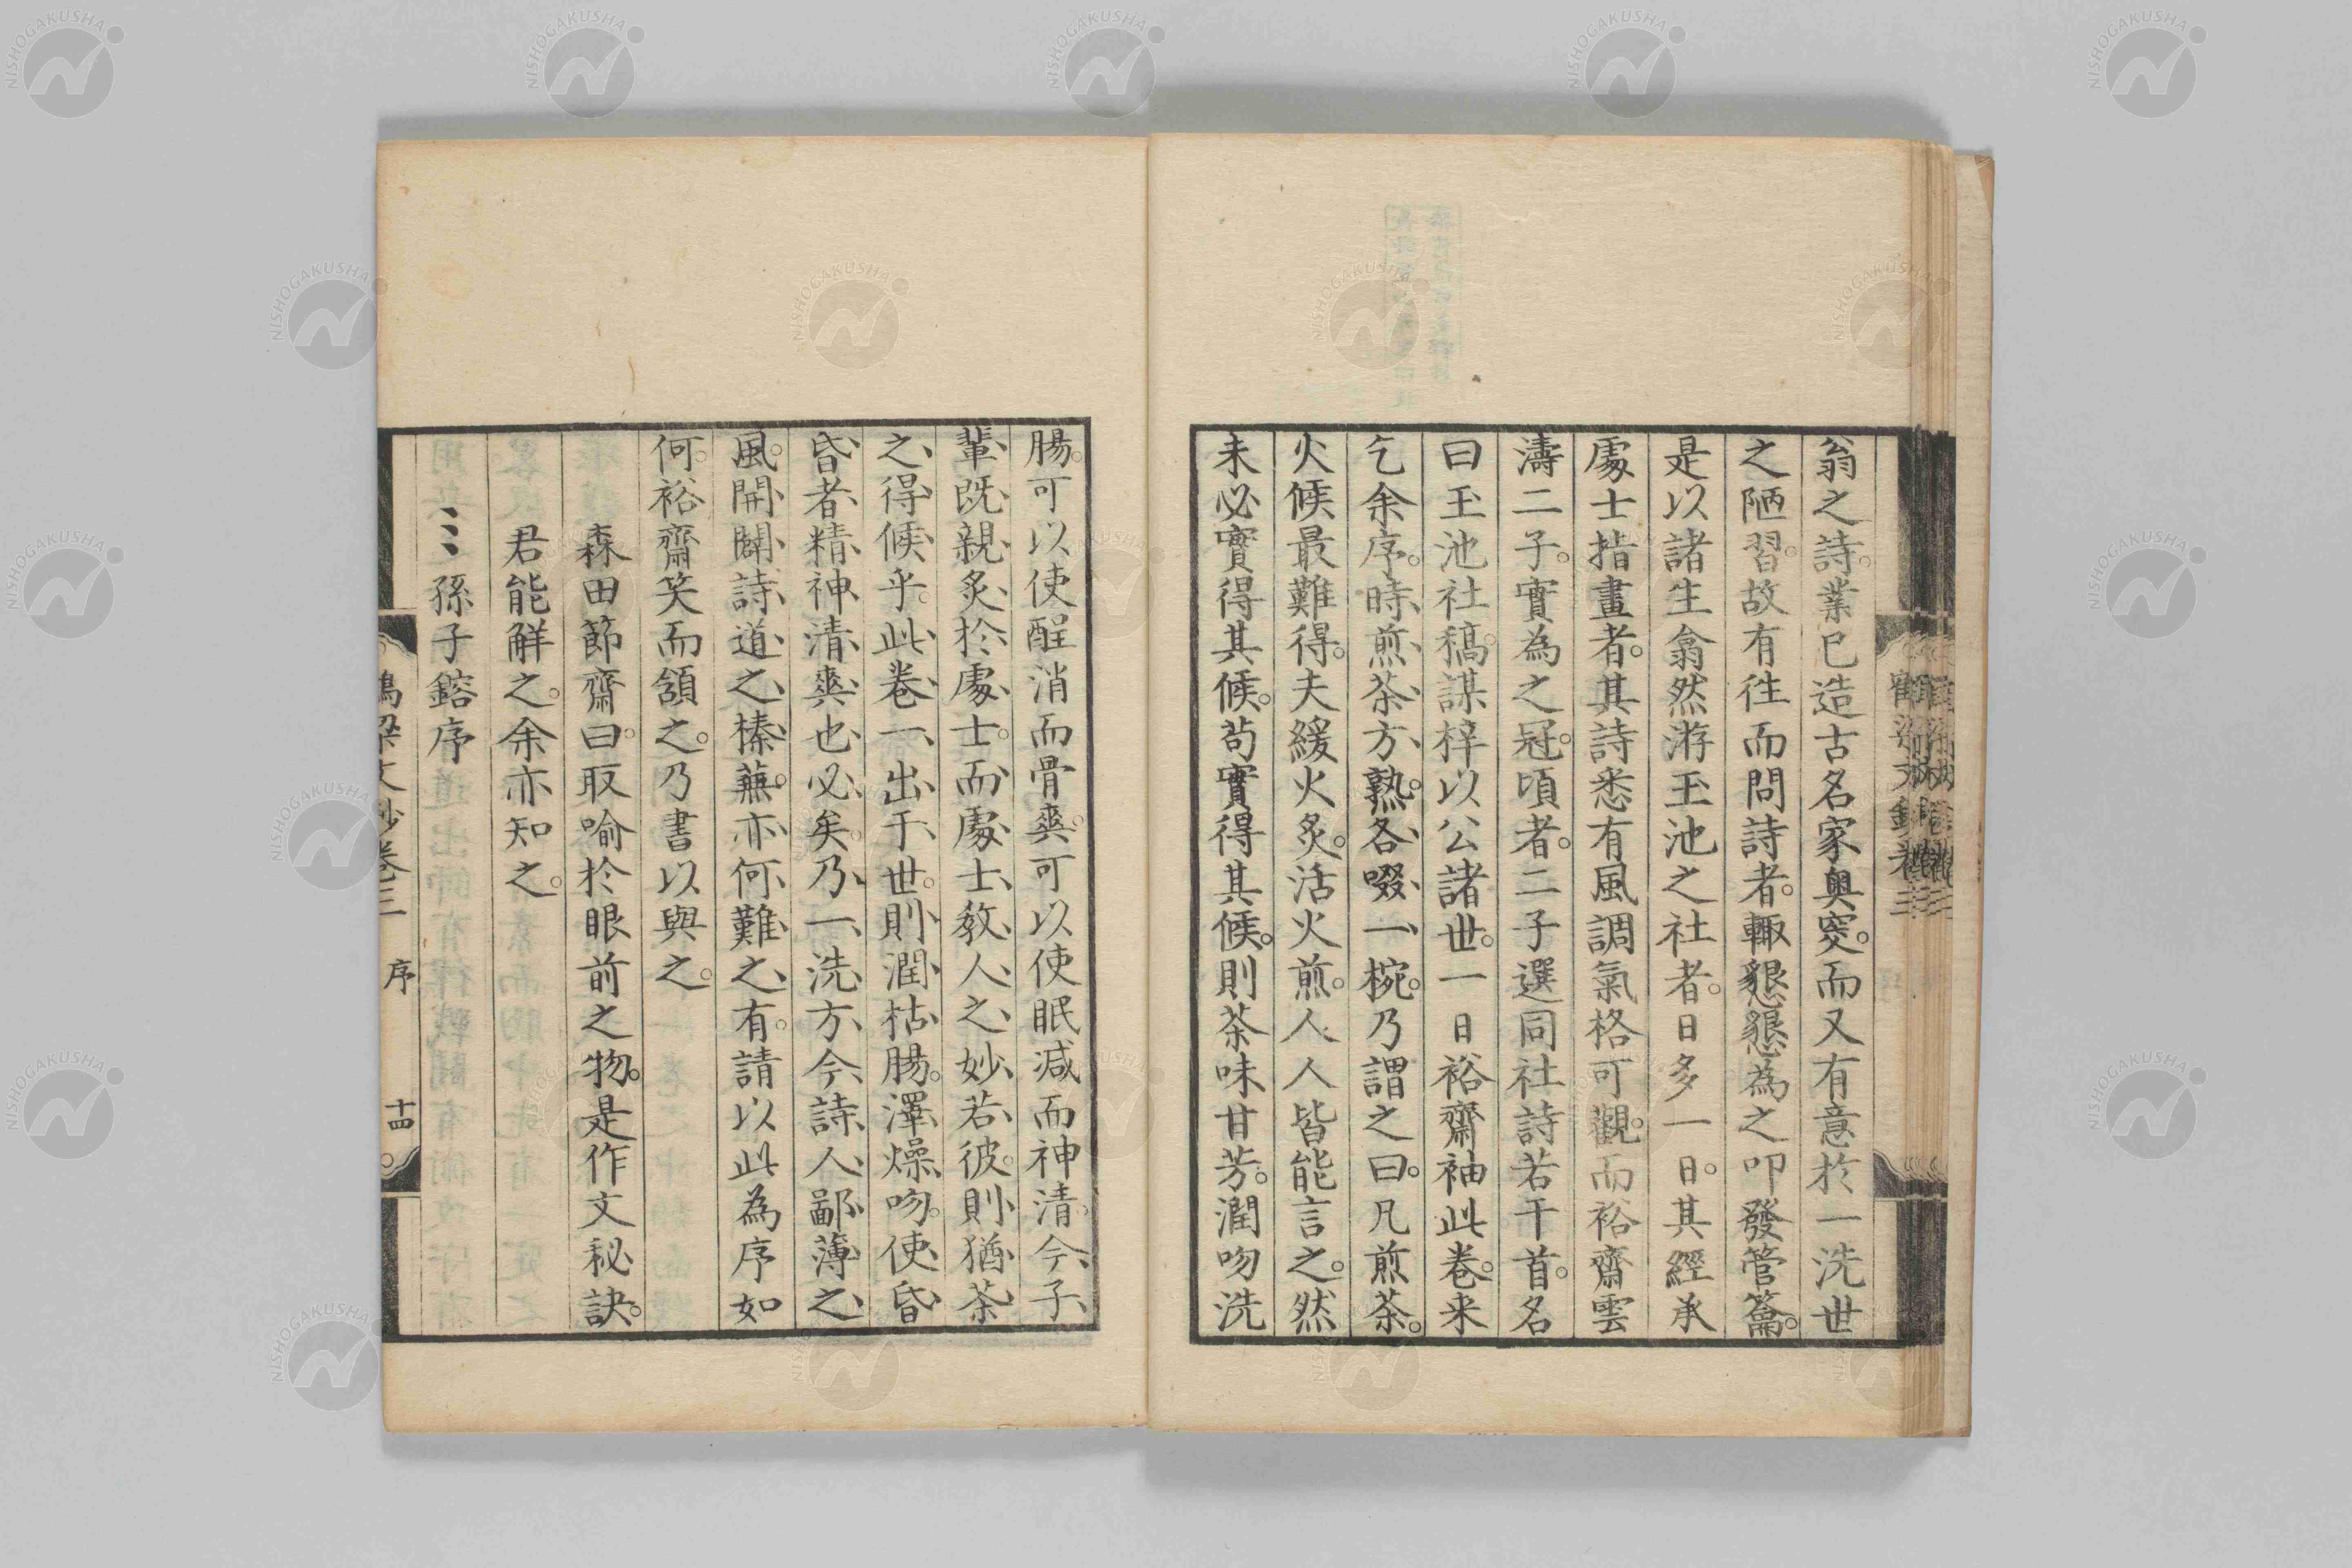 翁之詩。業已造古名家奧窔。而又有意於一洗世
之陋習。故有徃而問詩者。輙懇懇為之叩發管籥。
是以諸生翕然游玉池之社者。日多一日。其經承
處士指畫者。其詩悉有風調氣格可觀。而裕齋雲
濤二子。實為之冠。頃者。二子選同社詩若干首。名
曰玉池社稿。謀梓以公諸世。一日裕齋袖此卷。来
乞余序。時煎茶方熟。各啜一椀。乃謂之曰。凡煎茶。
火候最難得。夫緩火炙。活火煎。人人皆能言之。然
未必實得其候。苟實得其候。則茶味甘芳。潤吻洗
腸。可以使酲消而骨爽。可以使眠減而神清。今子
輩既親炙於處士。而處士教人之妙若彼。則猶茶
之得候乎。此卷一出于世。則潤枯腸。澤燥吻。使昏
昏者精神清爽也必矣。乃一洗方今詩人鄙薄之
風。開闢詩道之榛蕪。亦何難之有。請以此為序如
何。裕齋笑而頷之。乃書以與之。
森田節齋曰。取喻於眼前之物。是作文秘訣。
君能解之。余亦知之。
孫子鎔序
梁文鈔卷三 序 十四
NISHOGAKUSHA